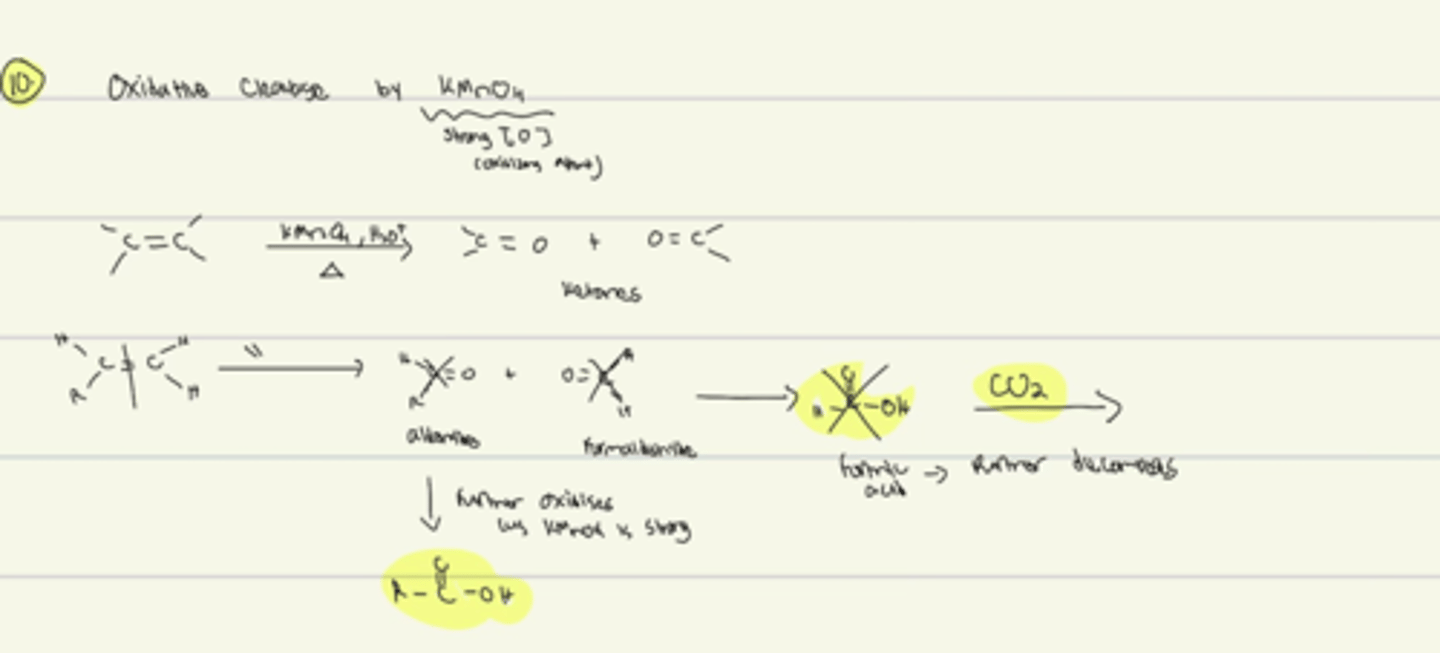 10. Oxidative Cleavage by KMnO4
strong [O]
(oxidising agent)
C=C KMnO4, H3O+ Δ C=O + O=C
ketones
H R C=C H H " H R C=O + O=C H H → H-C-OH CO2
aldehydes formaldehyde
formic acid → further decomposes
↓ further oxidises
cus KMnO4 is strong
R-C-OH